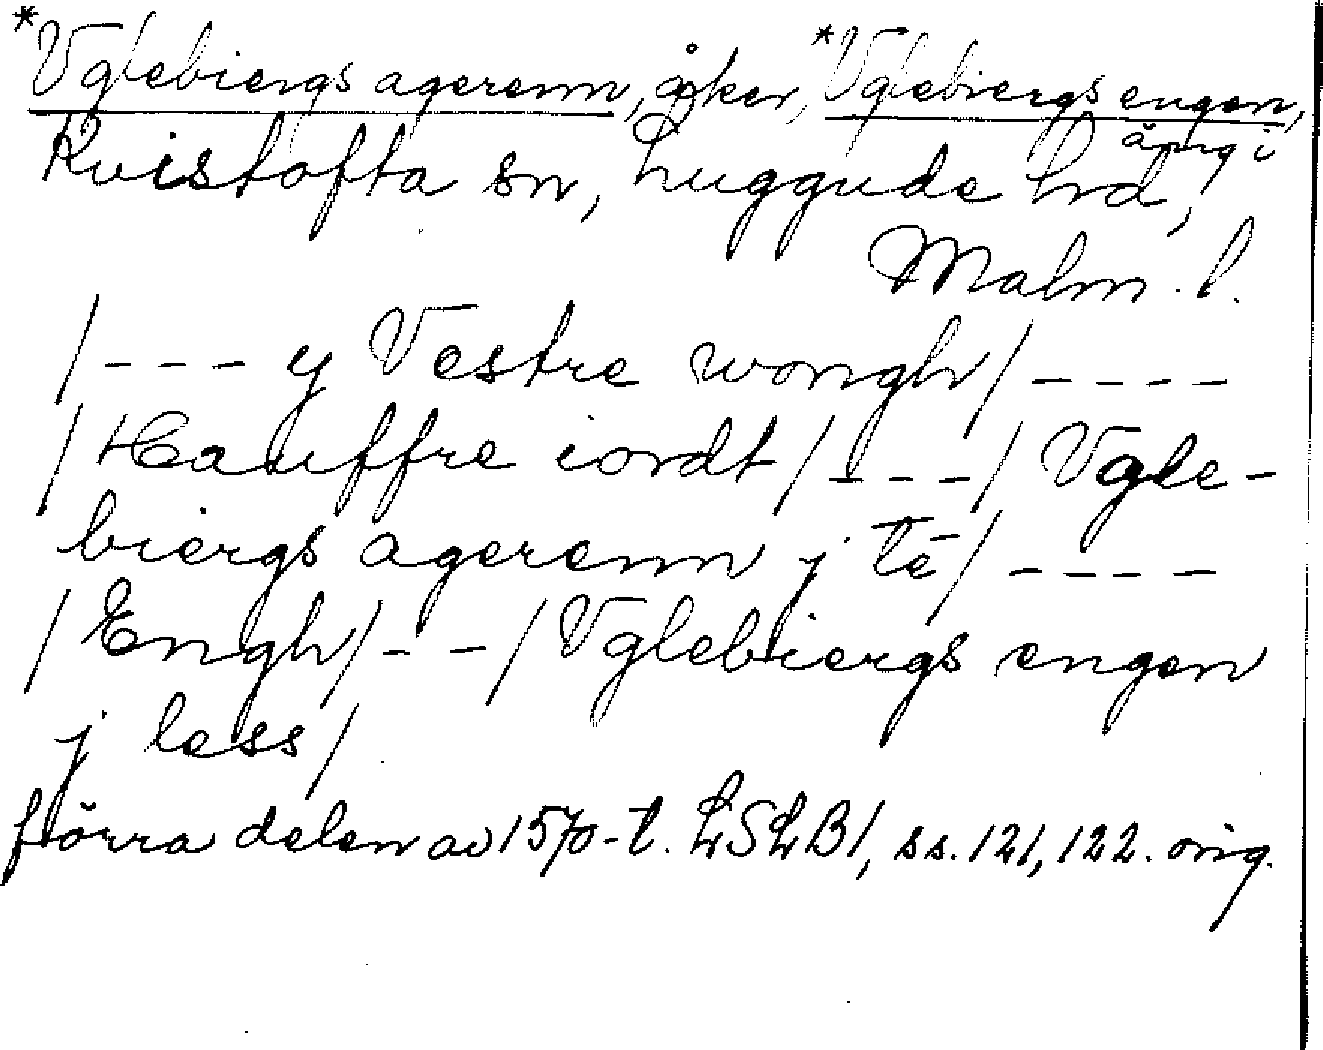 *Vglebiergs agerenn, åker, *Vglebiergs engen,
äng i
Kvistofta sn, Luggude hd,
Malm. l.
/--- y Vestre wongh/----
/Hauffre iordt/---/Vgle-
biergs agerenn j tē/----
/Engh/--/Vglebiergs engen
j less/
förra delen av 1570-t. LSLB1, ss. 121, 122. orig.